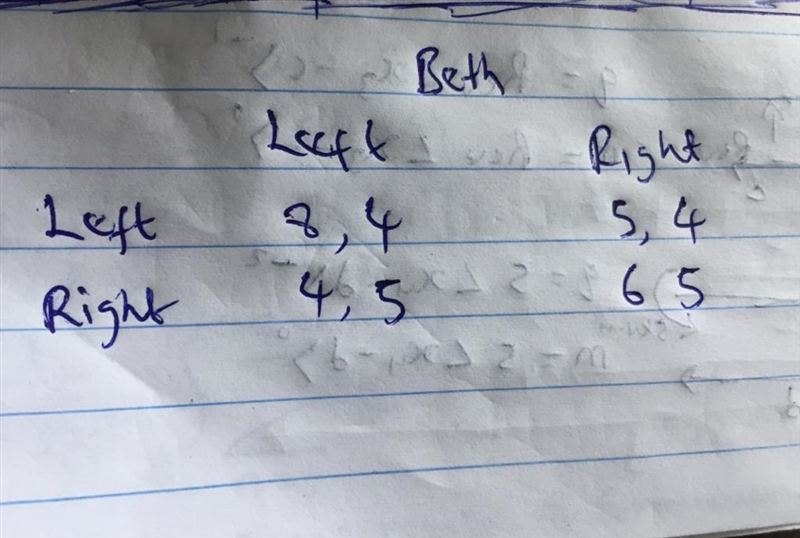 Beth
Left Right
Left 8, 4 5, 4
Right 4, 5 6 5